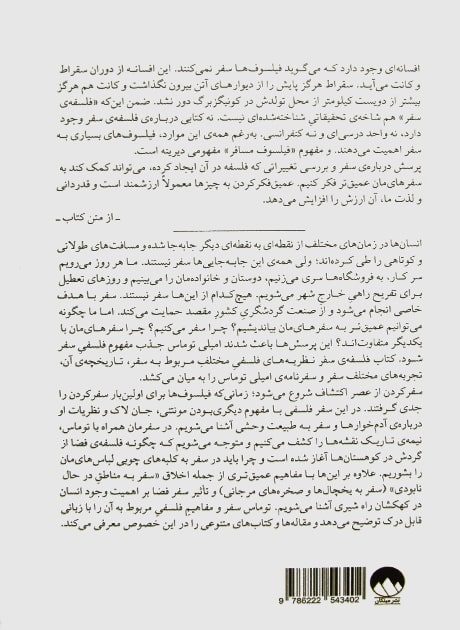 افسانه‌ای وجود دارد که می‌گوید فیلسوف‌ها سفر نمی‌کنند. این افسانه از دوران سقراط
و کانت می‌آید. سقراط هرگز پایش را از دیوارهای آتن بیرون نگذاشت و کانت هم هرگز
بیشتر از دویست کیلومتر از محل تولدش در کونیگزبرگ دور نشد. ضمن این‌که «فلسفه‌ی
سفر» هم شاخه‌ی تحقیقاتی شناخته‌شده‌ای نیست. نه کتابی درباره‌ی فلسفه‌ی سفر وجود
دارد، نه واحد درسی‌ای و نه کنفرانسی. به‌رغم همه‌ی این موارد، فیلسوف‌های بسیاری به
سفر اهمیت می‌دهند. و مفهوم «فیلسوف مسافر» مفهومی دیرینه است.
پرسش درباره‌ی سفر و بررسی تغییراتی که فلسفه در آن ایجاد کرده، می‌تواند کمک کند به
سفرهای‌مان عمیق‌تر فکر کنیم. عمیق‌فکرکردن به چیزها معمولاً ارزشمند است و قدردانی
و لذت ما، آن ارزش را افزایش می‌دهد.
ـ از متن کتاب ـ
انسان‌ها در زمان‌های مختلف از نقطه‌ای به نقطه‌ای دیگر جابه‌جا شده و مسافت‌های طولانی
و کوتاهی را طی کرده‌اند؛ ولی همه‌ی این جابه‌جایی‌ها سفر نیستند. ما هر روز می‌رویم
سر کار، به فروشگاه‌ها سری می‌زنیم، دوستان و خانواده‌مان را می‌بینیم و روزهای تعطیل
برای تفریح راهی خارج شهر می‌شویم. هیچ‌کدام از این‌ها سفر نیستند. سفر با هدف
خاصی انجام می‌شود و از صنعت گردشگری کشور مقصد حمایت می‌کند. اما ما چگونه
می‌توانیم عمیق‌تر به سفرهای‌مان بیاندیشیم؟ چرا سفر می‌کنیم؟ چرا سفرهای‌مان با
یکدیگر متفاوت‌اند؟ این پرسش‌ها باعث شدند امیلی توماس جذب مفهوم فلسفی سفر
شود. کتاب فلسفه‌ی سفر نظریه‌های فلسفی مختلف مربوط به سفر، تاریخچه‌ی آن،
تجربه‌های مختلف سفر و سفرنامه‌ی امیلی توماس را به میان می‌کشد.
سفرکردن از عصر اکتشاف شروع می‌شود؛ زمانی‌که فیلسوف‌ها برای اولین‌بار سفرکردن را
جدی گرفتند. در این سفر فلسفی با مفهوم دیگری‌بودن مونتنی، جان لاک و نظریات او
درباره‌ی آدم‌خوارها و سفر به طبیعت وحشی آشنا می‌شویم. در سفرمان همراه با توماس،
نیمه‌ی تاریک نقشه‌ها را کشف می‌کنیم و متوجه می‌شویم که چگونه فلسفه‌ی فضا از
گردش در کوهستان‌ها آغاز شده است و چرا باید در سفر به کلبه‌های چوبی لباس‌های‌مان
را بشوریم. علاوه بر این‌ها با مفاهیم عمیق‌تری از جمله اخلاق «سفر به مناطق در حال
نابودی» (سفر به یخچال‌ها و صخره‌های مرجانی) و تأثیر سفر فضا بر اهمیت وجود انسان
در کهکشان راه شیری آشنا می‌شویم. توماس سفر و مفاهیم فلسفی مربوط به آن را با زبانی
قابل درک توضیح می‌دهد و مقاله‌ها و کتاب‌های متنوعی را در این خصوص معرفی می‌کند.
9 786222 543402
نشر میلکان